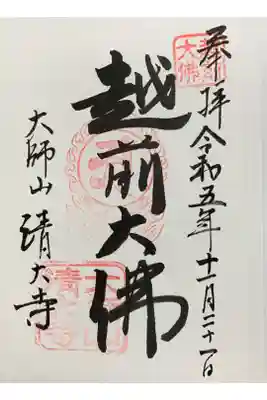 奉拝 令和五年十一月二十一日
越前大佛
大師山 清大寺
越前
大佛